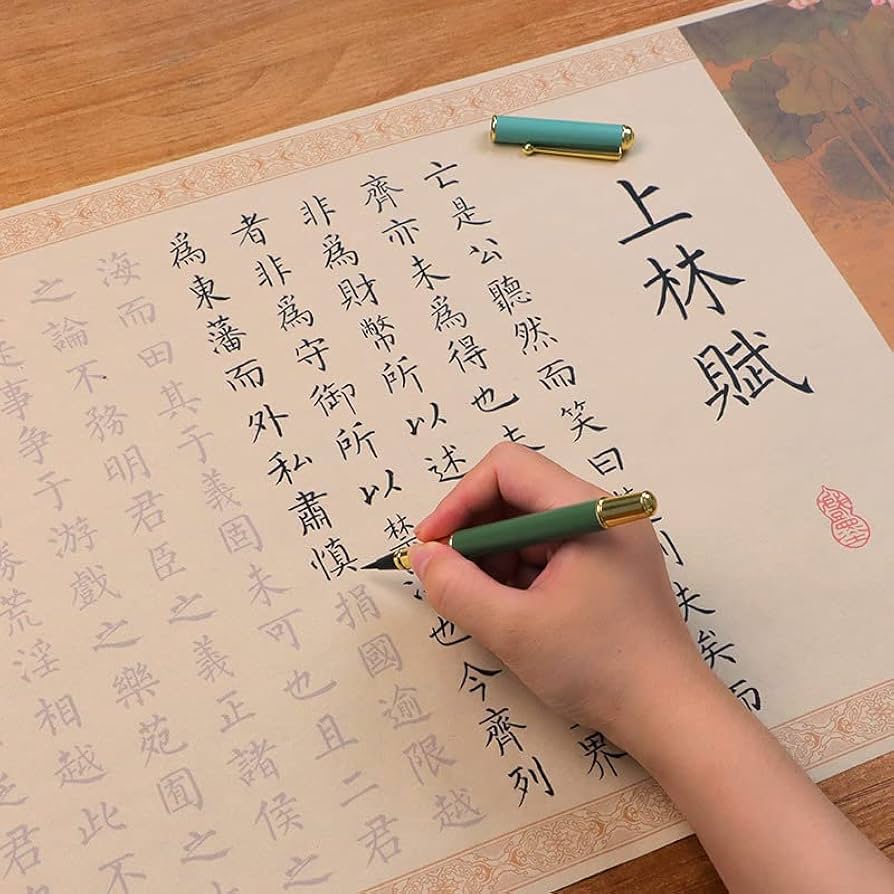 上林賦
亡是公聽然而笑曰則失矣而
齊亦未爲得也夫
非爲財幣所以述界
者非爲守御所以禁也今齊列
爲東藩而外私肅慎捐國逾限越
海而田其于義固未可也且二君
之論不務明君臣之義正諸侯之
事爭于游戲之樂苑囿之
勝荒淫相越此不